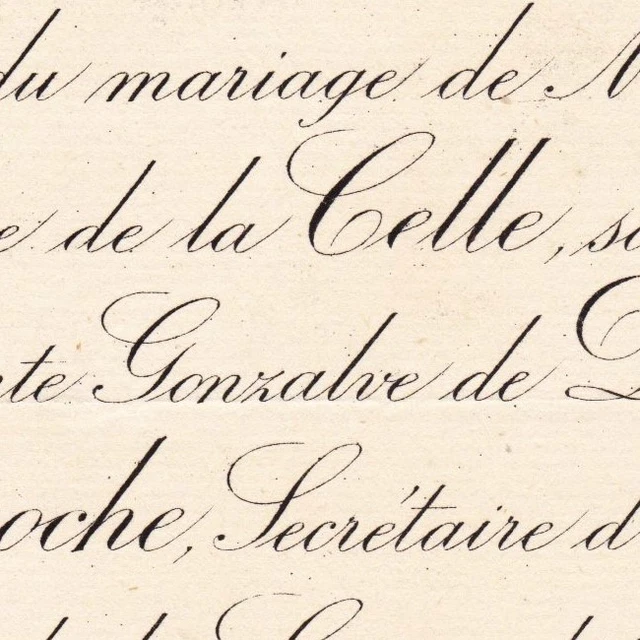 du mariage de M
e de la Celle, so
nte Gonzalve de
oche, Secrétaire d